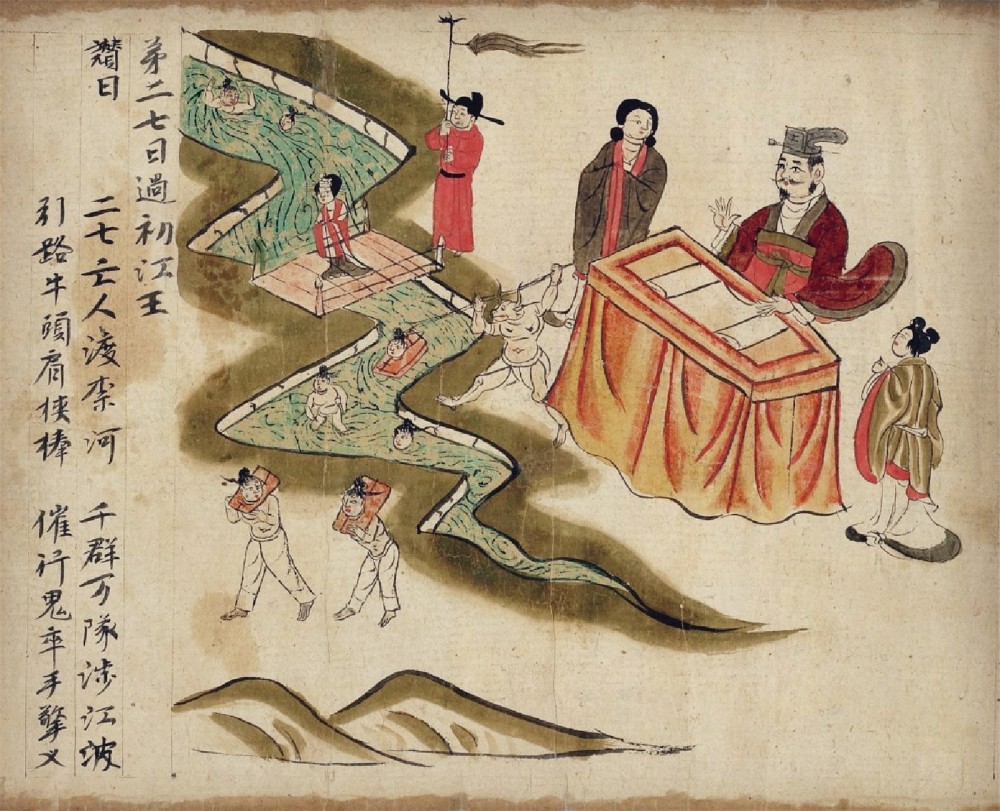 苐二七日過初江王
讃曰 二七亡人渡柰河 千群万隊涉江波
引路牛頭肩挾棒 催行鬼卒手擎叉